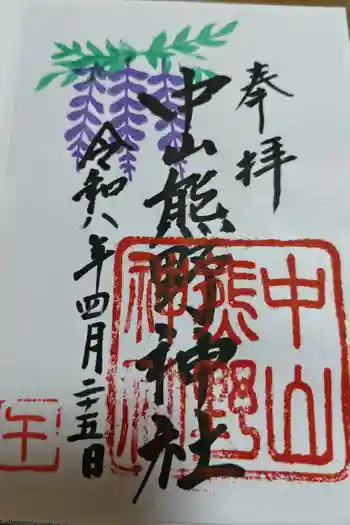 奉拝
中山熊野神社
令和八年四月二十五日
中山
熊野
神社
午